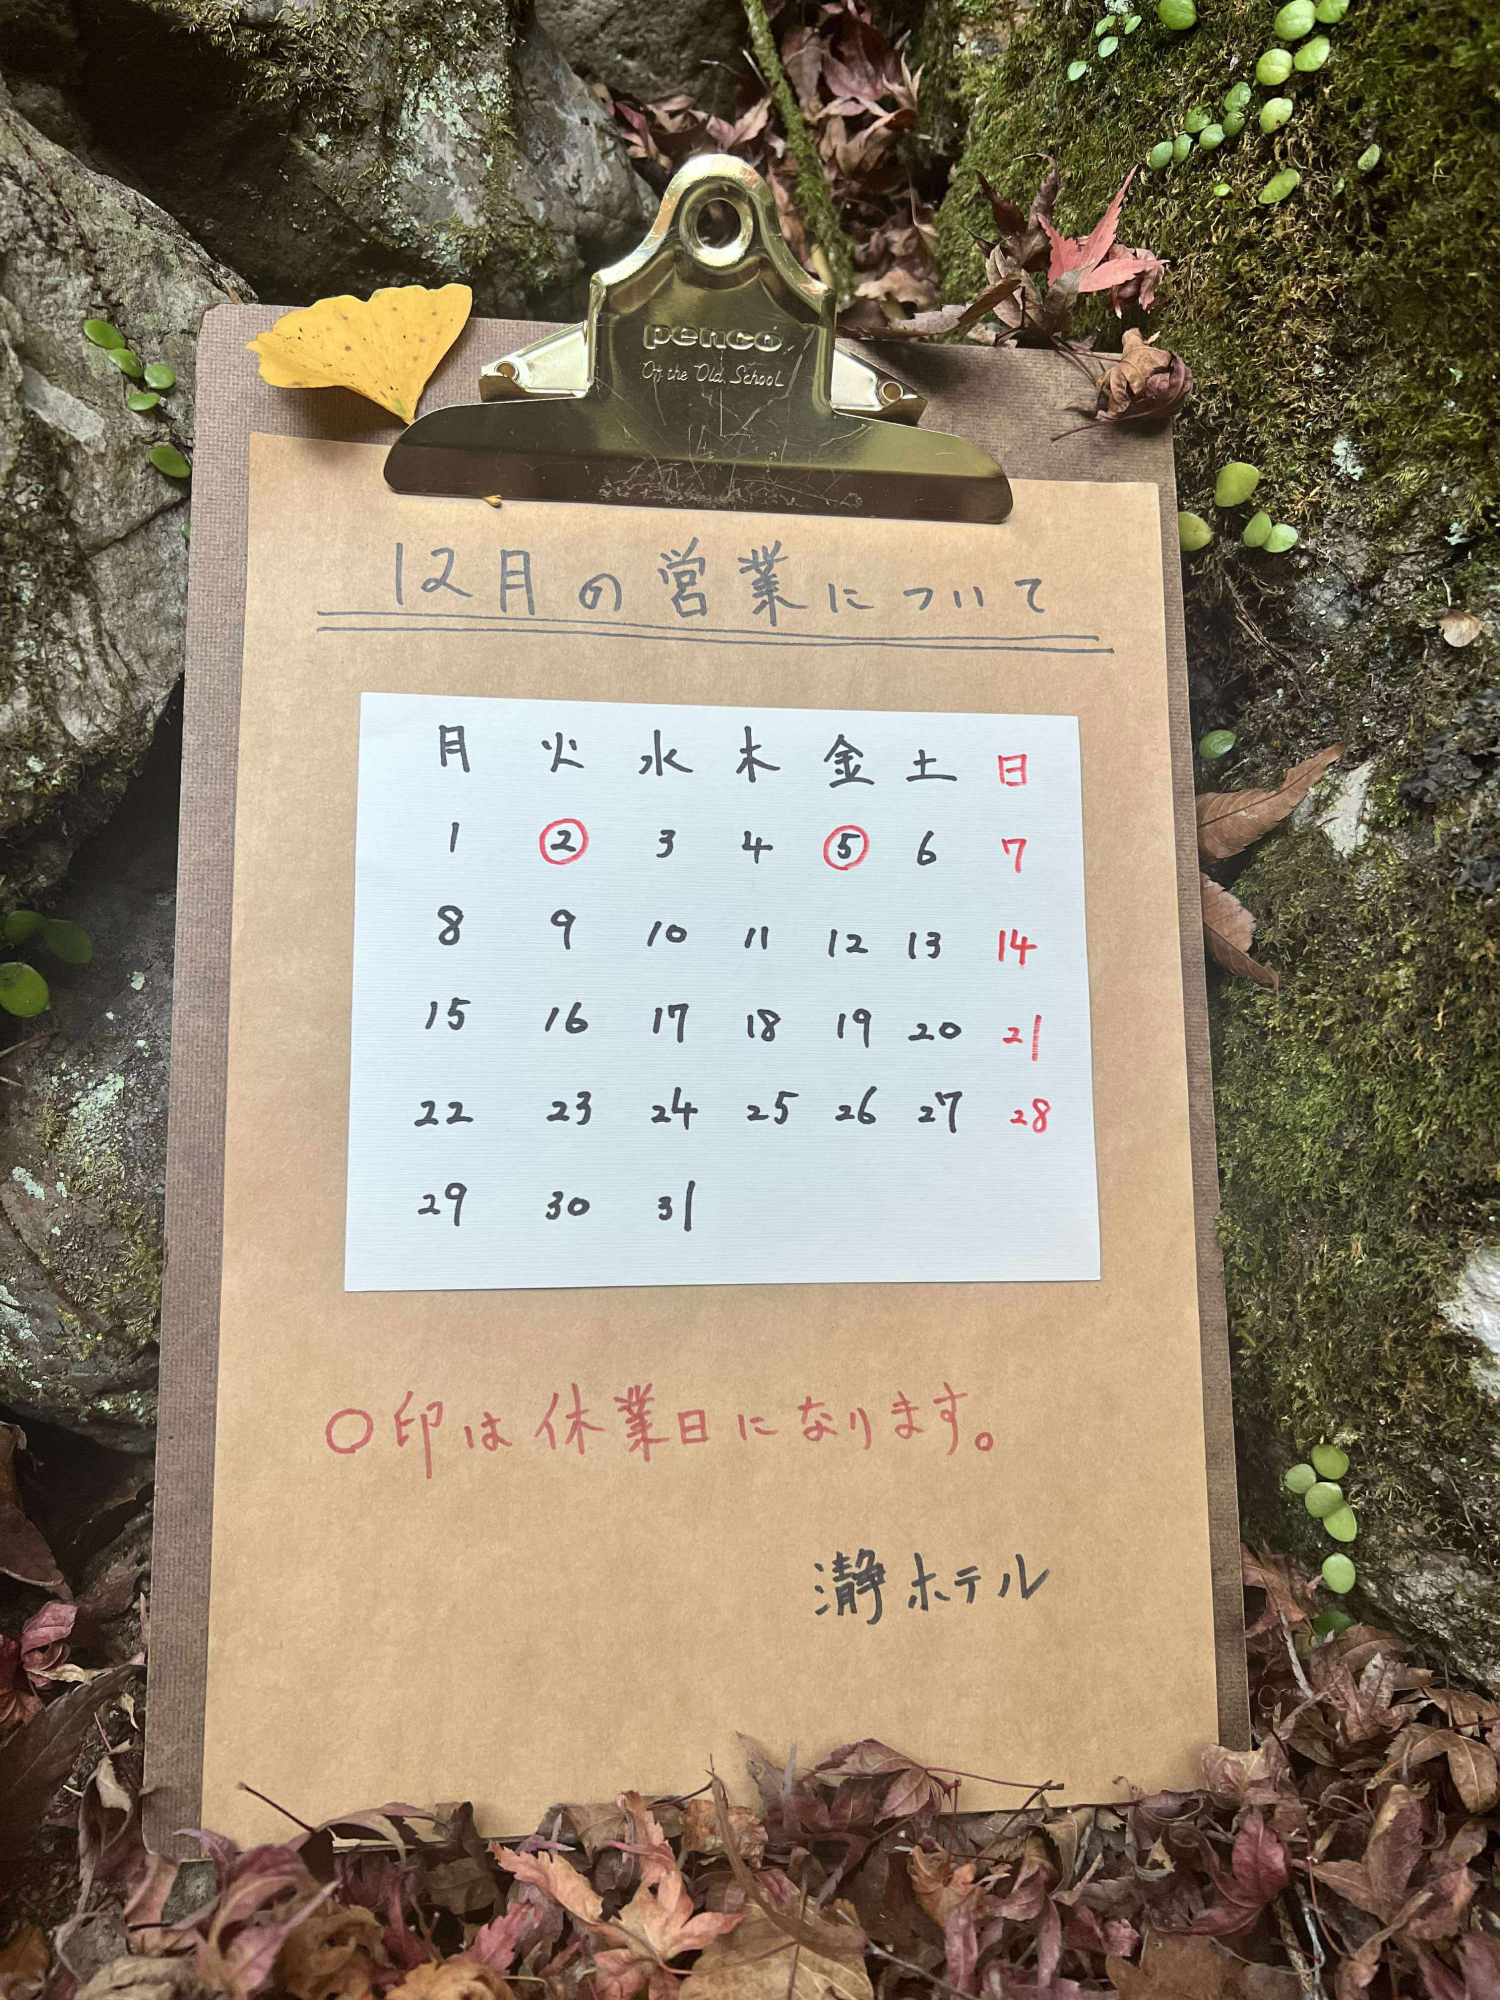 penco
Off the Old School
12月の営業について
月 火 水 木 金 土 日
1 2 3 4 5 6 7
8 9 10 11 12 13 14
15 16 17 18 19 20 21
22 23 24 25 26 27 28
29 30 31
○印は休業日になります。
瀞ホテル